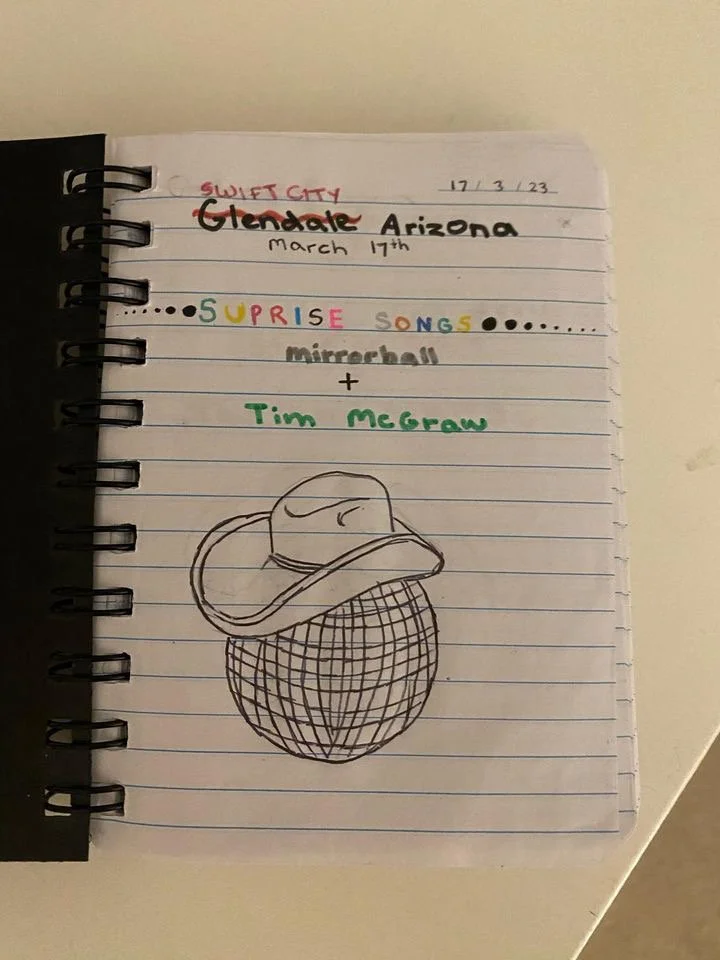 SWIFT CITY
17 / 3 / 23
Glendale Arizona
March 17th
SUPRISE SONGS
mirrorball
+
Tim McGraw